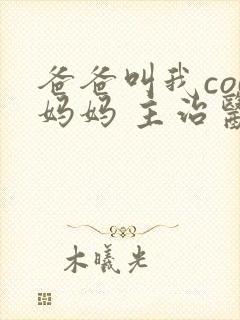 爸爸叫我co
妈妈 主治
木曦光